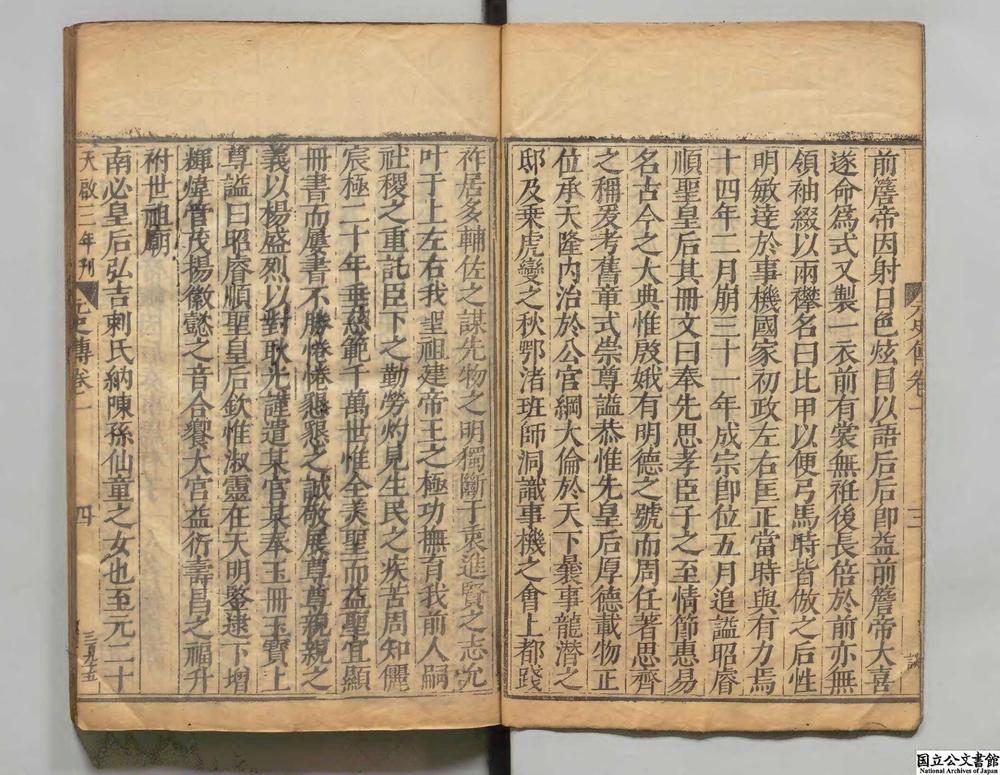 前簷帝因射日色炫目以語后后卽益前簷帝大喜
遂命爲式又製一衣前有裳無袵後長倍於前亦無
領袖綴以兩襻名曰比甲以便弓馬時皆倣之后性
明敏達於事機國家初政左右匡正當時與有力焉
十四年二月崩三十一年成宗卽位五月追謚昭睿
順聖皇后其冊文曰奉先思孝臣子之至情節惠易
名古今之大典惟殷娥有明德之號而周任著思齊
之稱爰考舊章式崇尊謚恭惟先皇后厚德載物正
位承天隆內治於公官綱大倫於天下曩事龍潛之
邸及乗虎變之秋鄂渚班師洞識事機之會上都踐
祚居多輔佐之謀先物之明獨斷于衷進賢之志允
叶于上左右我聖祖建帝王之極功撫育我前人嗣
社稷之重託臣下之勤勞灼見生民之疾苦周知儷
宸極二十年垂慈範千萬世惟全美聖而益聖宜顯
冊書而屢書不勝惓惓懇懇之誠敬展尊尊親親之
義以楊盛烈以對耿光謹遣某官某奉玉冊玉寶上
尊謚曰昭睿順聖皇后欽惟淑靈在天明鑒逮下增
輝煒管茂揚徽懿之音合饗大宫益衍壽昌之福升
祔世祖廟
南必皇后弘吉剌氏納陳孫仙童之女也至元二十
天啟二年刊
元史傳卷一
四
国立公文書館
National Archives of Japan